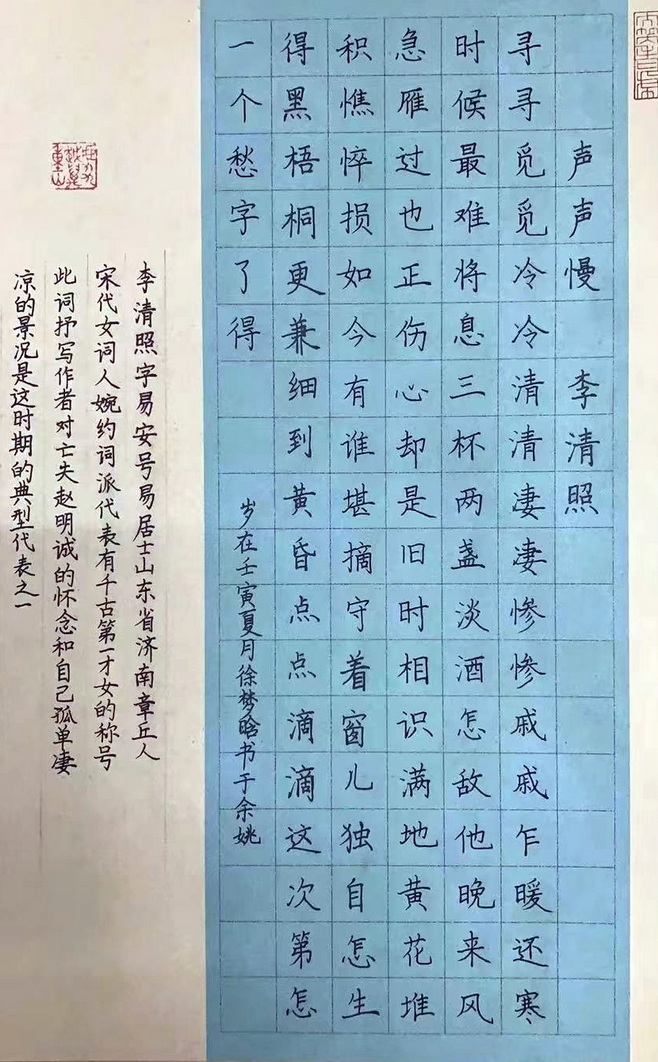 声声慢 李清照
寻寻觅觅冷冷清清凄凄惨惨戚戚乍暖还寒
时候最难将息三杯两盏淡酒怎敌他晚来风
急雁过也正伤心却是旧时相识满地黄花堆
积憔悴损如今有谁堪摘守着窗儿独自怎生
得黑梧桐更兼细到黄昏点点滴滴这次第怎
一个愁字了得
岁在壬寅夏月徐梦晗书于余姚
李清照字易安号易居士山东省济南章丘人
宋代女词人婉约词派代表有千古第一才女的称号
此词抒写作者对亡失赵明诚的怀念和自己孤单凄
凉的景况是这时期的典型代表之一